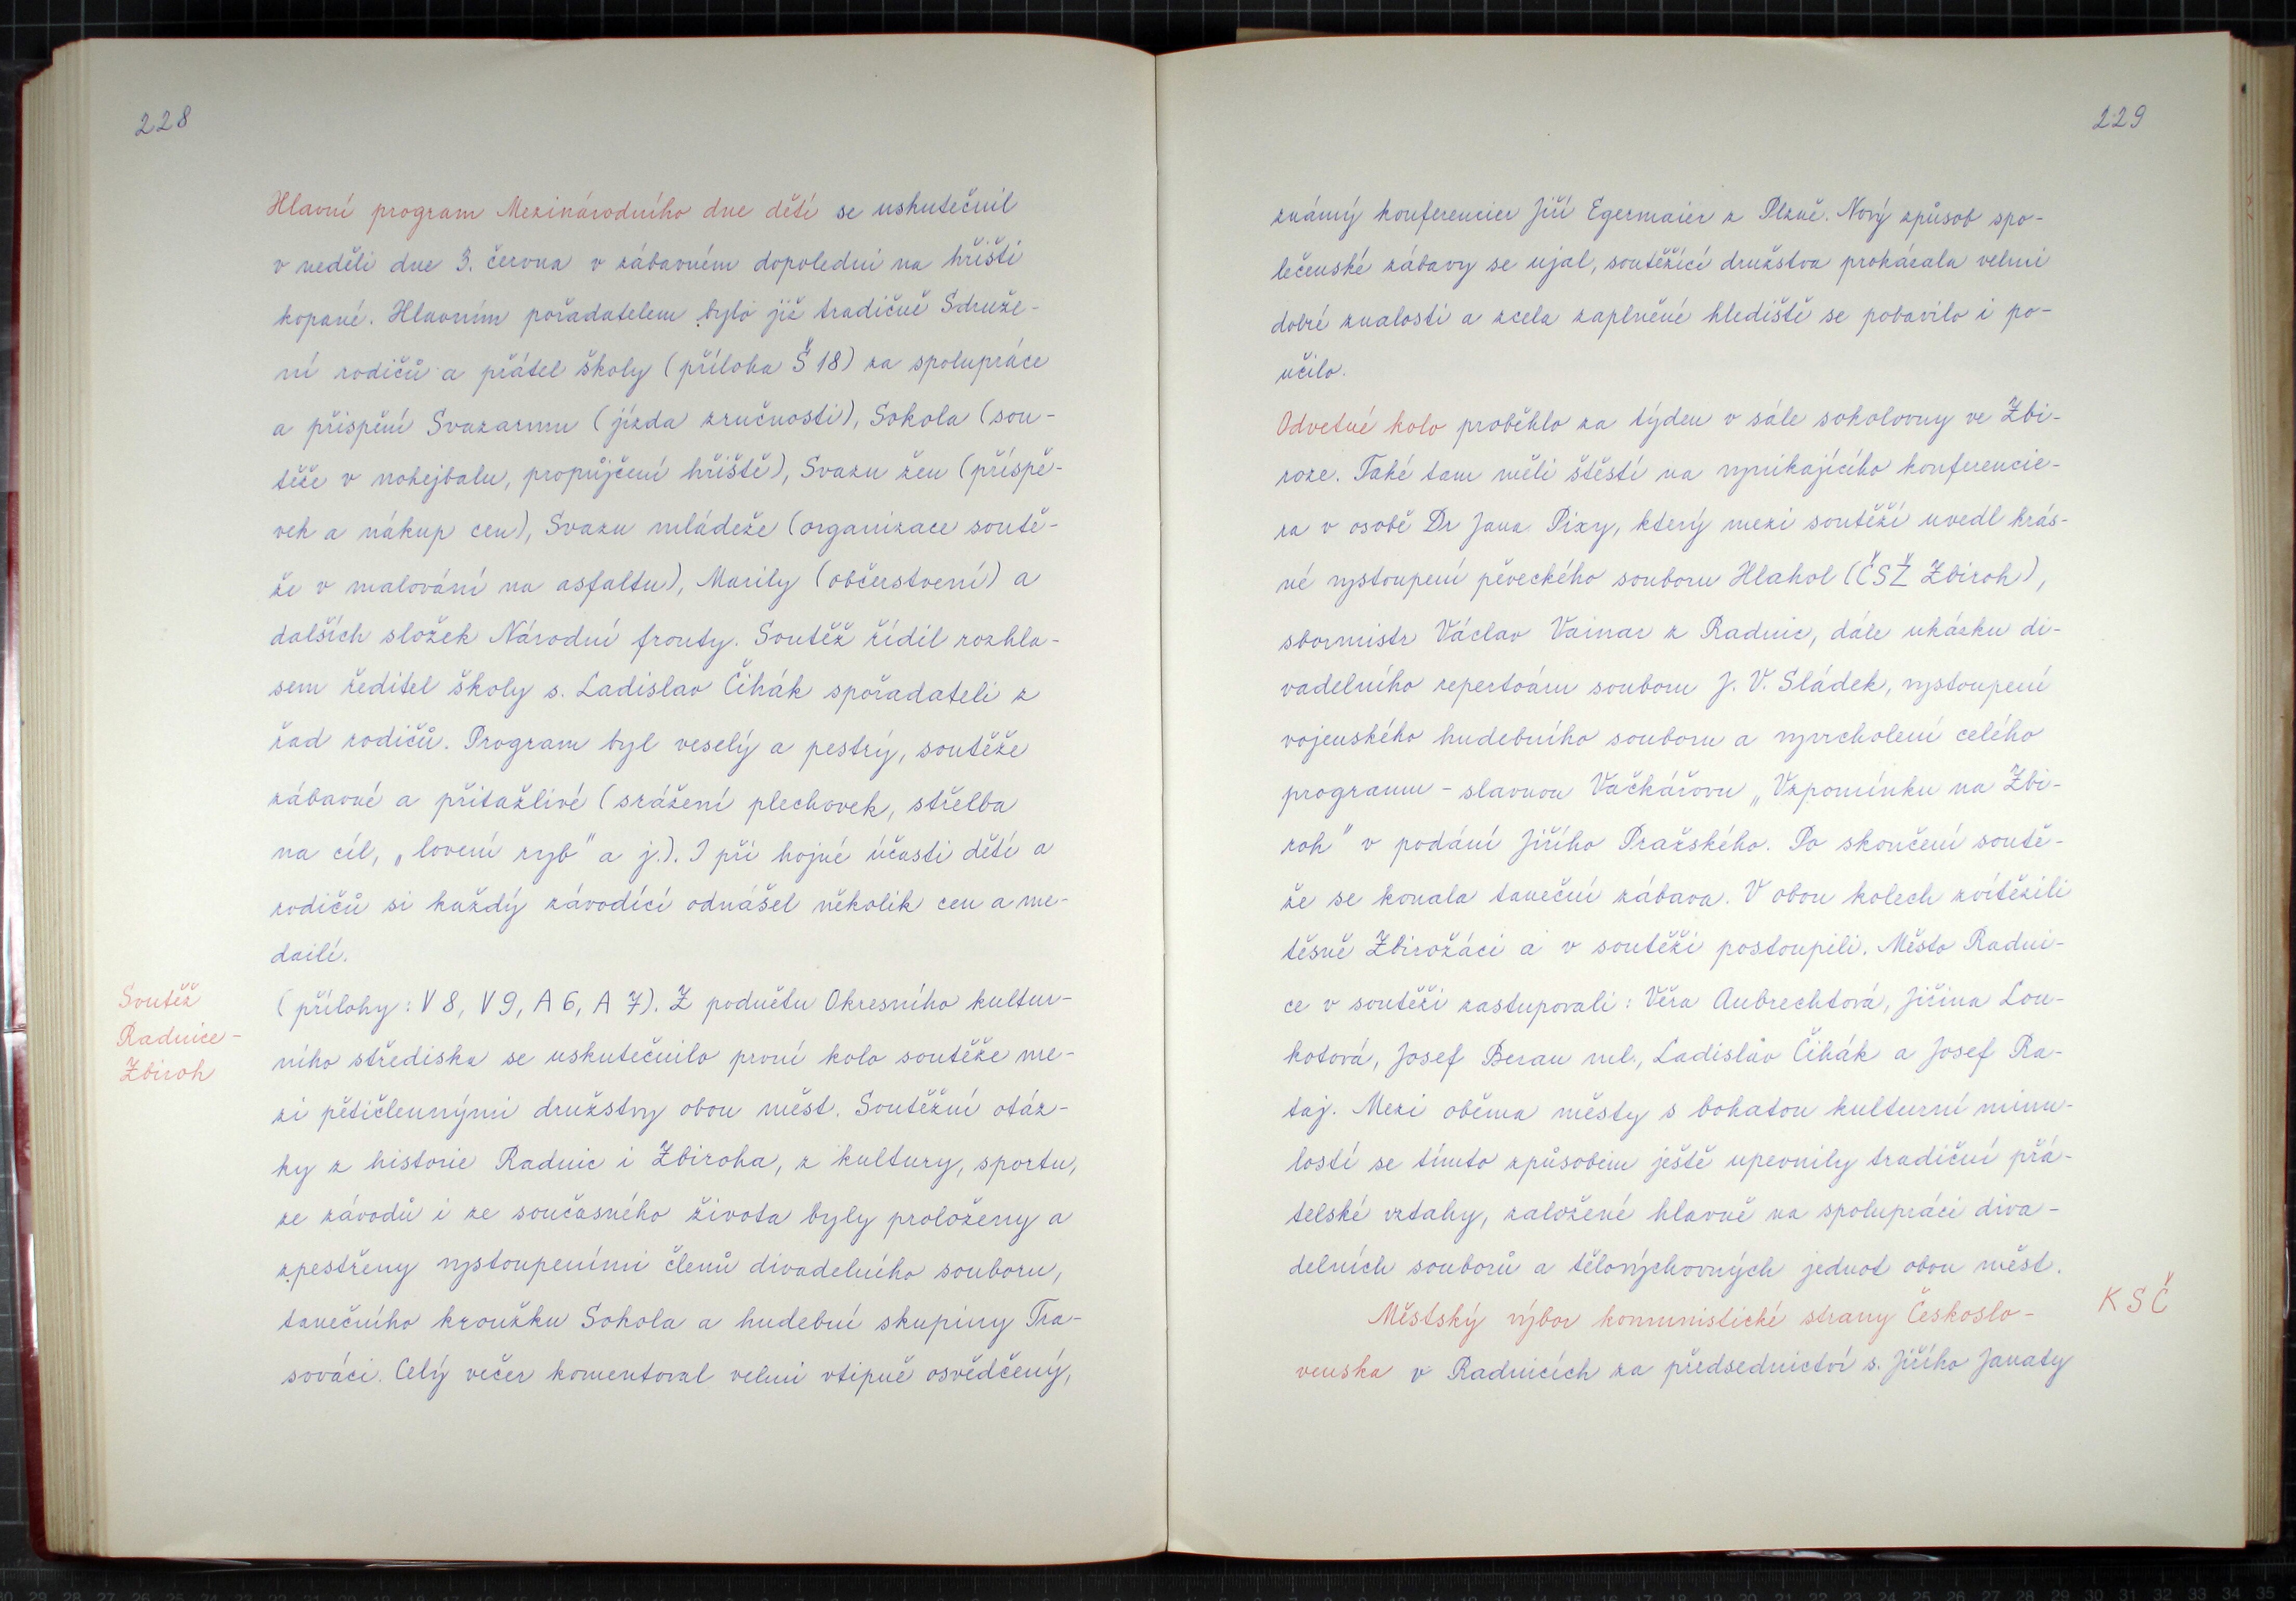 228
Hlavní program Mezinárodního dne dětí se uskutečnil
v neděli dne 3. června v zábavném dopoledni na hřišti
kopané. Hlavním pořadatelem bylo již tradičně Sdruže-
ní rodičů a přátel školy (příloha Š 18) za spolupráce
a přispění Svazarmu (jízda zručnosti), Sokola (sou-
těže v nohejbalu, propůjčení hřiště), Svazu žen (příspě-
vek a nákup cen), Svazu mládeže (organizace soutě-
že v malování na asfaltu), Marily (občerstvení) a
dalších složek Národní fronty. Soutěž řídil rozhla-
sem ředitel školy s. Ladislav Čihák s pořadateli z
řad rodičů. Program byl veselý a pestrý, soutěže
zábavné a přitažlivé (srážení plechovek, střelba
na cíl, „lovení ryb" a j.). I při hojné účasti dětí a
rodičů si každý závodící odnášel několik cen a me-
dailí.
Soutěž
Radnice -
Zbiroh
(přílohy: V 8, V 9, A 6, A 7). Z podnětu Okresního kultur-
ního střediska se uskutečnilo první kolo soutěže me-
zi pětičlennými družstvy obou měst. Soutěžní otáz-
ky z historie Radnic i Zbiroha, z kultury, sportu,
ze závodů i ze současného života byly proloženy a
zpestřeny vystoupeními členů divadelního souboru,
tanečního kroužku Sokola a hudební skupiny Tra-
sováci. Celý večer komentoval velmi vtipně osvědčený,
229
známý konferencier Jiří Egermaier z Plzně. Nový způsob spo-
lečenské zábavy se ujal, soutěžící družstva prokázala velmi
dobré znalosti a zcela zaplněné hlediště se pobavilo i po-
učilo.
Odvetné kolo proběhlo za týden v sále sokolovny ve Zbi-
roze. Také tam měli štěstí na vynikajícího konferencie-
ra v osobě Dr Jana Pixy, který mezi soutěží uvedl krás-
né vystoupení pěveckého souboru Hlahol (ČSŽ Zbiroh),
sbormistr Václav Vainar z Radnic, dále ukázku di-
vadelního repertoáru souboru J. V. Sládek, vystoupení
vojenského hudebního souboru a vyvrcholení celého
programu - slavnou Vačkářovu „Vzpomínku na Zbi-
roh" v podání Jiřího Pražského. Po skončení soutě-
že se konala taneční zábava. V obou kolech zvítězili
těsně Zbirožáci a v soutěži postoupili. Město Radni-
ce v soutěži zastupovali: Věra Aubrechtová, Jiřina Lou-
kotová, Josef Beran ml., Ladislav Čihák a Josef Ra-
taj. Mezi oběma městy s bohatou kulturní minu-
lostí se tímto způsobem ještě upevnily tradiční přá-
telské vztahy, založené hlavně na spolupráci diva-
delních souborů a tělovýchovných jednot obou měst.
KSČ
Městský výbor komunistické strany Českoslo-
venska v Radnicích za předsednictví s. Jiřího Janaty